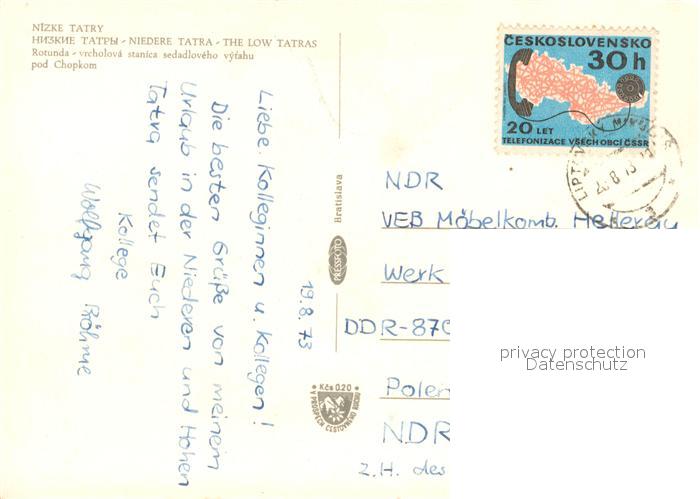 NÍZKE TATRY
НИЗКИЕ ТАТРЫ - NIEDERE TATRA - THE LOW TATRAS
Rotunda - vrcholová stanica sedadlového výťahu
pod Chopkom
19.8.73
Liebe Kolleginnen u. Kollegen!
Die besten Grüße von meinem
Urlaub in der Niederen und Hohen
Tatra sendet Euch
Kollege
Wolfgang Böhme
Bratislava
PRESSFOTO
Kčs 0.20
V PROSPECH CESTOVNÉHO RUCHU
ČESKOSLOVENSKO
30 h
20 LET
TELEFONIZACE VŠECH OBCÍ ČSSR
NDR
VEB Möbelkomb. Hellerau
Werk
DDR-870
Polen
NDR
z.H. des
privacy protection
Datenschutz